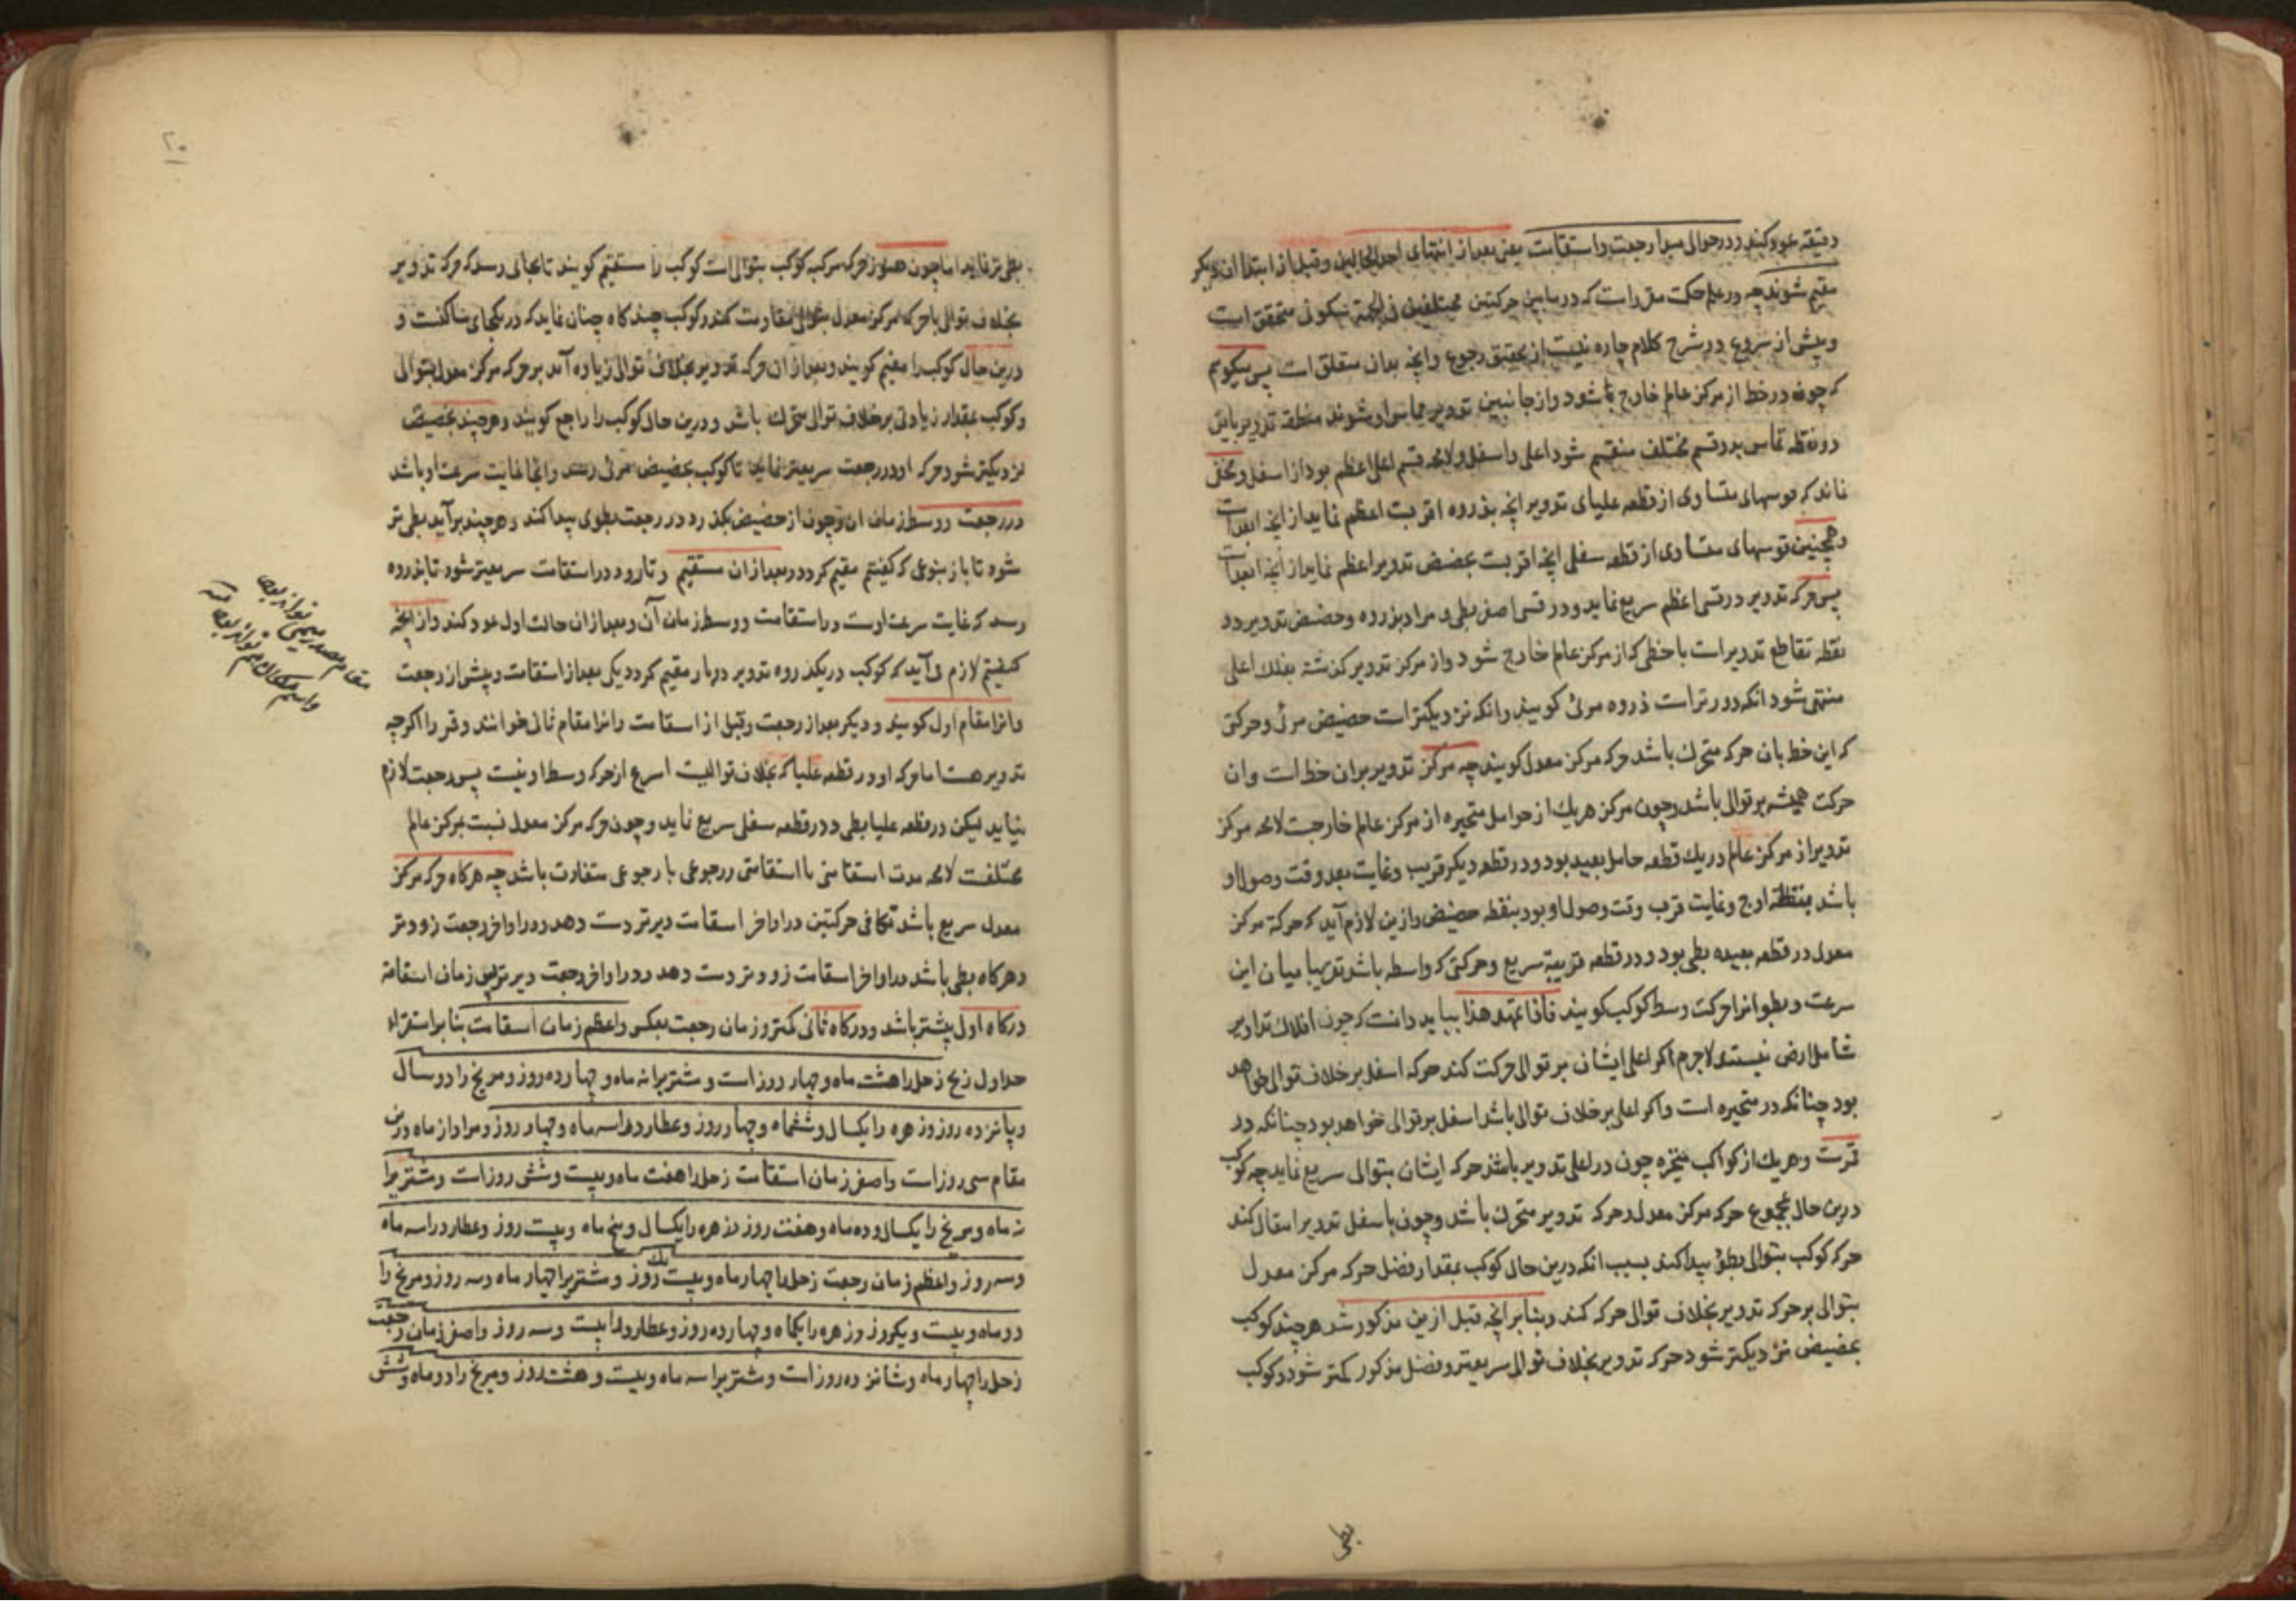 دقیقه عود کند و در حوالی مبدا رجعت و استقامت یعنی بعد از انتهای احد الحالین و قبل از ابتدا ان دیگر
مقیم شوند چه در علم حکمت مقرر است که در مابین حرکتین مختلفین فی الجهة سکونی متحقق است
و پیش از شروع در شرح کلام چاره نیست از تحقیق رجوع و انچه بدان متعلق است پس میکوییم
که چون دو خط از مرکز عالم خارج شود و از جانبین تدویر مماس او شوند منطقه تدویر باین
دو نقطه تماس بدو قسم مختلف منقسم شود اعلی و اسفل و لامحه قسم اعلی اعظم بود از اسفل و مخفی
نماند که قوسهای متساوی از قطعه علیای تدویر انچه بذروه اقربست اعظم نماید از انچه ابعد است
و همچنین قوسهای متساوی از قطعه سفلی انچه اقربست بحضیض تدویر اعظم نماید از انچه ابعد است
پس حرکه تدویر در قسی اعظم سریع نماید و در قسی اصغر بطی و مراد بذروه و حضیض تدویر دو
نقطه تقاطع تدویر است با خطی که از مرکز عالم خارج شود و از مرکز تدویر کذشته بفلك اعلی
منتهی شود انکه دورتر است ذروه مرئی کویند و انکه نزدیکتر است حضیض مرئی و حرکتی
که این خط بان حرکه متحرك باشد حرکه مرکز معدل کویند چه مرکز تدویر بران خط است وان
حرکت همیشه بر توالی باشد و چون مرکز هریك از حوامل متحیره از مرکز عالم خارجست لامحه مرکز
تدویر از مرکز عالم در یك قطعه حامل بعید بود و در قطعه دیگر قریب و غایت بعد وقت وصول او
باشد بنقطه اوج و غایت قرب وقت وصول او بود بنقطه حضیض و ازین لازم آید که حرکة مرکز
معدل در قطعه بعیده بطی بود و در قطعه قریبة سریع و حرکتی که واسطه باشد تقریبا میان این
سرعت و بطو انرا حرکت وسط کوکب کویند فاذا تمهد هذا بباید دانست که چون افلاك تداویر
شامل ارض نیستند لاجرم اکر اعلی ایشان بر توالی حرکت کند حرکه اسفل بر خلاف توالی خواهد
بود چنانکه در متحیره است و اکر اعلی بر خلاف توالی باشد اسفل بر توالی خواهد بود چنانکه در
قمرست و هریك از کواکب متحیره چون در اعلی تدویر باشند حرکه ایشان بتوالی سریع نماید چه کوکب
درین حال بمجموع حرکه مرکز معدل و حرکه تدویر متحرك باشد و چون باسفل تدویر انتقال کند
حرکه کوکب بتوالی بطؤ پیدا کند بسبب انکه درین حال کوکب بمقدار فضل حرکه مرکز معدل
بتوالی بر حرکه تدویر بخلاف توالی حرکه کند و بنابر انچه قبل ازین مذکور شد هر چند کوکب
بحضیض نزدیکتر شود حرکه تدویر بخلاف توالی سریعتر و فضل مذکور کمتر شود و کوکب
بطی
۲۰
بطی تر نماید اما چون هنوز حرکه مرکب کوکب بتوالی است کوکب را مستقیم کویند تا بجائی رسد که حرکه تدویر
بخلاف توالی با حرکه مرکز معدل بتوالی مقاومت کند و کوکب چند کاه چنان نماید که در یکجای ساکنست و
درین حال کوکب را مقیم کویند و بعد از ان حرکه تدویر بخلاف توالی زیاده آمد بر حرکه مرکز معدل بتوالی
و کوکب بمقدار زیادتی بر خلاف توالی متحرك باشد و درین حال کوکب را راجع کویند و هر چند بحضیض
نزدیکتر شود حرکه او در رجعت سریعتر نماید تا کوکب بحضیض مرئی رسد و انجا غایت سرعت او باشد
در رجعت و وسط زمان ان و چون از حضیض بکذرد در رجعت بطوی پیدا کند و هر چند برآید بطی تر
شود تا باز بنوعی که کفتیم مقیم کردد و بعد از ان مستقیم و تا رود در استقامت سریعتر شود تا بذروه
رسد که غایت سرعت اوست در استقامت و وسط زمان آن و بعد از ان حالت اول عود کند و از انچه
کفتیم لازم می آید که کوکب در یکذروه تدویر دو بار مقیم کردد یکی بعد از استقامت و پیش از رجعت
و انرا مقام اول کویند و دیگر بعد از رجعت و قبل از استقامت و انرا مقام ثانی خوانند و قمر را اکرچه
تدویر هست اما حرکه او در قطعه علیا که بخلاف توالیست اسرع از حرکه وسط او نیست پس رجعت لازم
نیاید لیکن در قطعه علیا بطی و در قطعه سفلی سریع نماید و چون حرکه مرکز معدل نسبت بمرکز عالم
مختلفست لامحه مدت استقامتی با استقامتی و رجوعی با رجوعی متفاوت باشد چه هرکاه حرکه مرکز
معدل سریع باشد تکافی حرکتین در اواخر استقامت دیرتر دست دهد و در اواخر رجعت زودتر
و هرکاه بطی باشد در اواخر استقامت زودتر دست دهد و در اواخر رجعت دیرتر پس زمان استقامة
درکاه اول بیشتر باشد و درکاه ثانی کمتر و زمان رجعت بعکس و اعظم زمان استقامت بنابر استقراء
جداول زیج زحل را هشت ماه و چهار روز است و مشتریرا نه ماه و چهارده روز و مریخ را دو سال
و پانزده روز و زهره را یکسال و ششماه و چهار روز و عطارد را سه ماه و چهار روز و مراد از ماه درین
مقام سی روز است و اصغر زمان استقامت زحل را هفت ماه و بیست و شش روز است و مشتریرا
نه ماه و مریخ را یکسال و ده ماه و هفت روز و زهره را یکسال و پنج ماه و بیست روز و عطارد را سه ماه
و سه روز و اعظم زمان رجعت زحل را چهار ماه و بیست یك روز و مشتریرا چهار ماه و سه روز و مریخ را
دو ماه و بیست و یکروز و زهره را یکماه و چهارده روز و عطارد را بیست و سه روز و اصغر زمان رجعت
زحل را چهار ماه و شانزده روز است و مشتریرا سه ماه و بیست و هشت روز و مریخ را دو ماه و شش
مقام مصدر میمی تواند بود